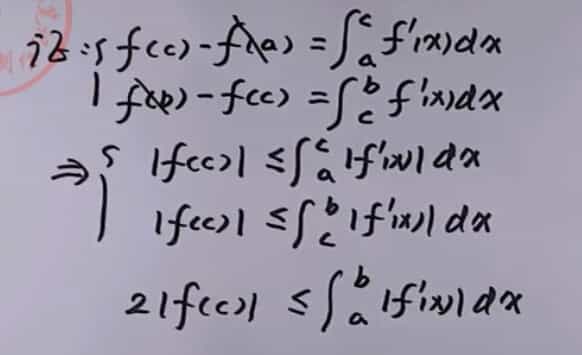 证: { f(c) - f(a) = ∫_a^c f'(x)dx
f(b) - f(c) = ∫_c^b f'(x)dx
⇒ { |f(c)| ≤ ∫_a^c |f'(x)| dx
|f(c)| ≤ ∫_c^b |f'(x)| dx
2|f(c)| ≤ ∫_a^b |f'(x)| dx